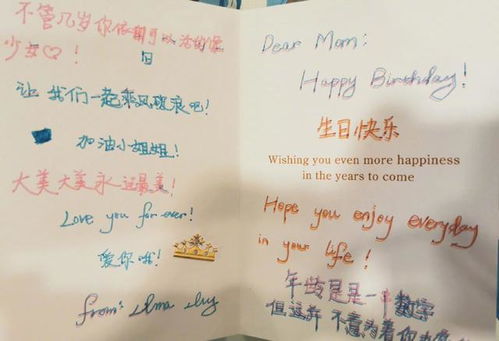 不管几岁你依旧可以活的像
少女♡!
让我们一起乘风破浪吧!
加油小姐姐!
大美大美永远最美!
Love you for ever!
爱你哦!
from:
Dear Mom:
Happy Birthday!
生日快乐
Wishing you even more happiness
in the years to come
Hope you enjoy everyday
in your life!
年龄是是一串数字
但这并不意为着你